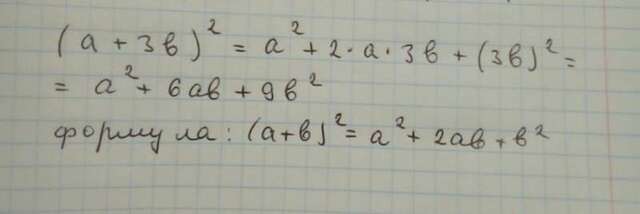 (a + 3в)² = a² + 2·a·3в + (3в)² =
= a² + 6ав + 9в²
формула: (а+в)² = а² + 2ав + в²